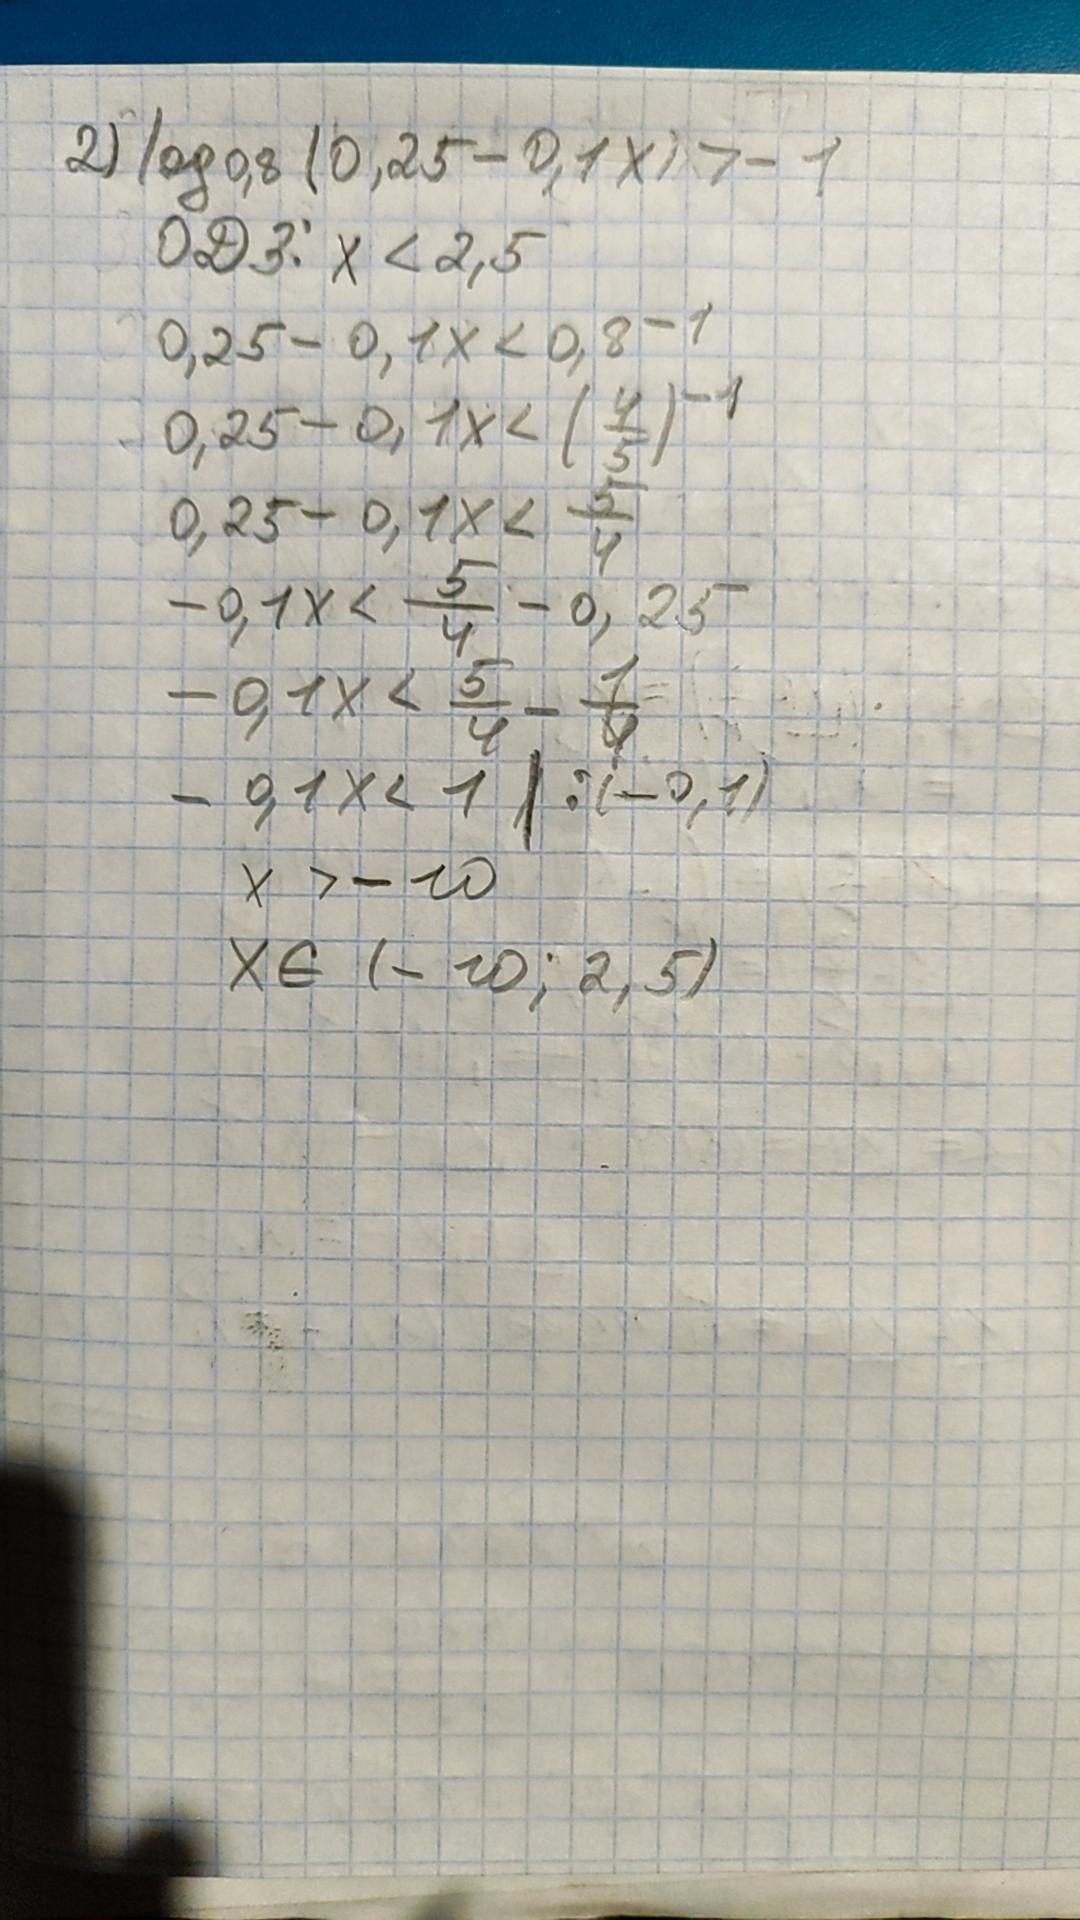 2) log0,8 (0,25 - 0,1x) > - 1
ОДЗ: x < 2,5
0,25 - 0,1x < 0,8⁻¹
0,25 - 0,1x < (4/5)⁻¹
0,25 - 0,1x < 5/4
- 0,1x < 5/4 - 0,25
- 0,1x < 5/4 - 1/4
- 0,1x < 1 | :(-0,1)
x > - 10
x ∈ (- 10; 2,5)